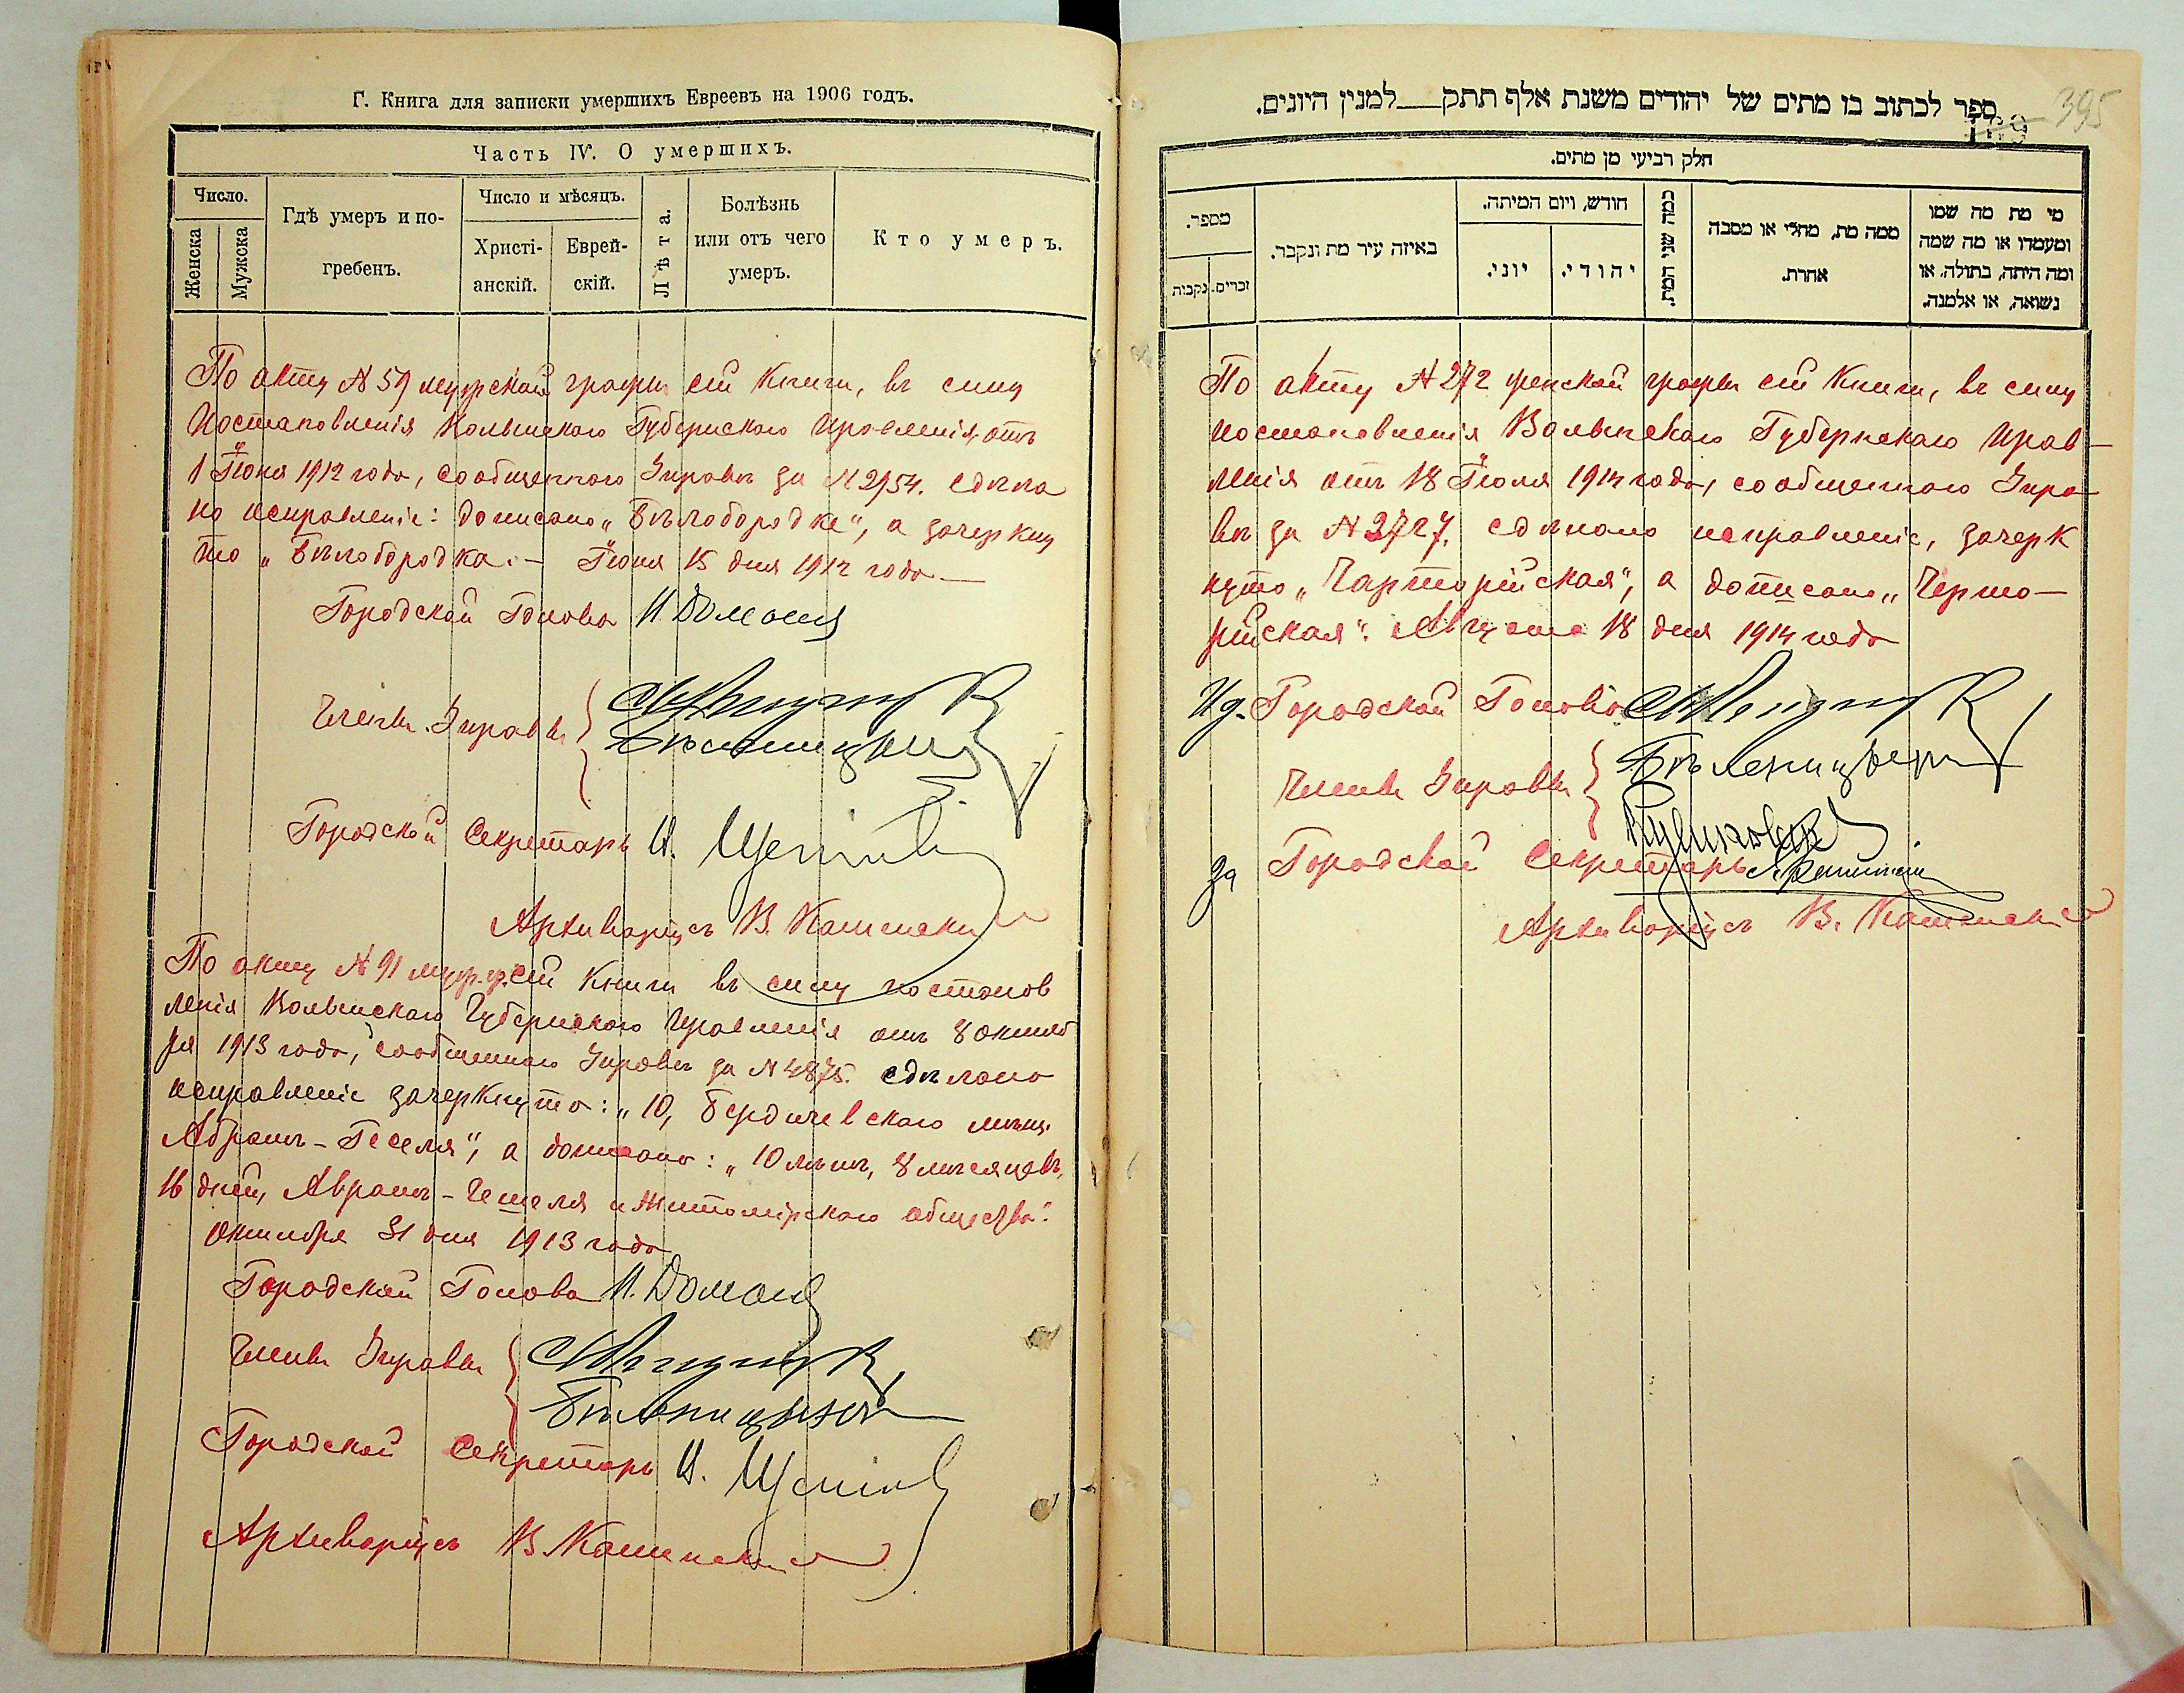 Г. Книга для записки умершихъ Евреевъ на 1906 годъ.
Часть IV. О умершихъ.
Число.
Женска
Мужска
Гдѣ умеръ и по-
гребенъ.
Число и мѣсяцъ.
Христі-
анскій.
Еврей-
скій.
Лѣта.
Болѣзнь
или отъ чего
умеръ.
Кто умеръ.
По акту № 59 мужской графы сей Книги, въ силу
Постановленія Волынскаго Губернскаго Правленія отъ
1 Іюня 1912 года, сообщеннаго Управѣ за № 2154. сдѣла
но исправленіе: дописано „Бѣлобородке", а зачеркну
то „Бѣлобородка. — Іюня 15 дня 1912 года —
Городской Голова И. Доманя
Члены Управы
Бѣленицкий
Городской Секретарь И.
Архиваріусъ В. Каменски
По акту № 91 муж. гр. сей Книги въ силу постанов
ленія Волынскаго Губернскаго Правленія отъ 8 октяб
ря 1913 года, сообщеннаго Управѣ за № 4875. сдѣлано
исправленіе зачеркнуто: „10, Бердичевскаго мѣщ.
Абрамъ-Геселя", а дописано: „10 лѣтъ, 8 мѣсяцевъ,
16 дней, Аврамъ-Гешеля и Житомірскаго общества".
Октября 31 дня 1913 года
Городской Голова И. Доманя
Члены Управы
Бѣленицкий
Городской Секретарь И.
Архиваріусъ В. Каменски
ספר לכתוב בו מתים של יהודים משנת אלף תתק__למנין היונים.
395
חלק רביעי מן מתים.
מספר.
זכרים.
נקבות
באיזה עיר מת ונקבר.
חודש, ויום המיתה.
יוני.
יהודי.
כמה שני המת.
ממה מת, מחלי או מסבה
אחרת.
מי מת מה שמו
ומעמדו או מה שמה
ומה היתה, בתולה, או
נשואה, או אלמנה.
По акту № 272 женской графы сей Книги, въ силу
постановленія Волынскаго Губернскаго Прав—
ленія отъ 18 Іюля 1914 года, сообщеннаго Упра
вѣ за № 2727. сдѣлано исправленіе, зачерк
нуто „Чарторійская", а дописано „Черто—
рійская". Августа 18 дня 1914 года
Ид. Городской Голова
Члены Управы
Бѣленицкий
За Городской Секретарь
Архиваріусъ В. Каменски